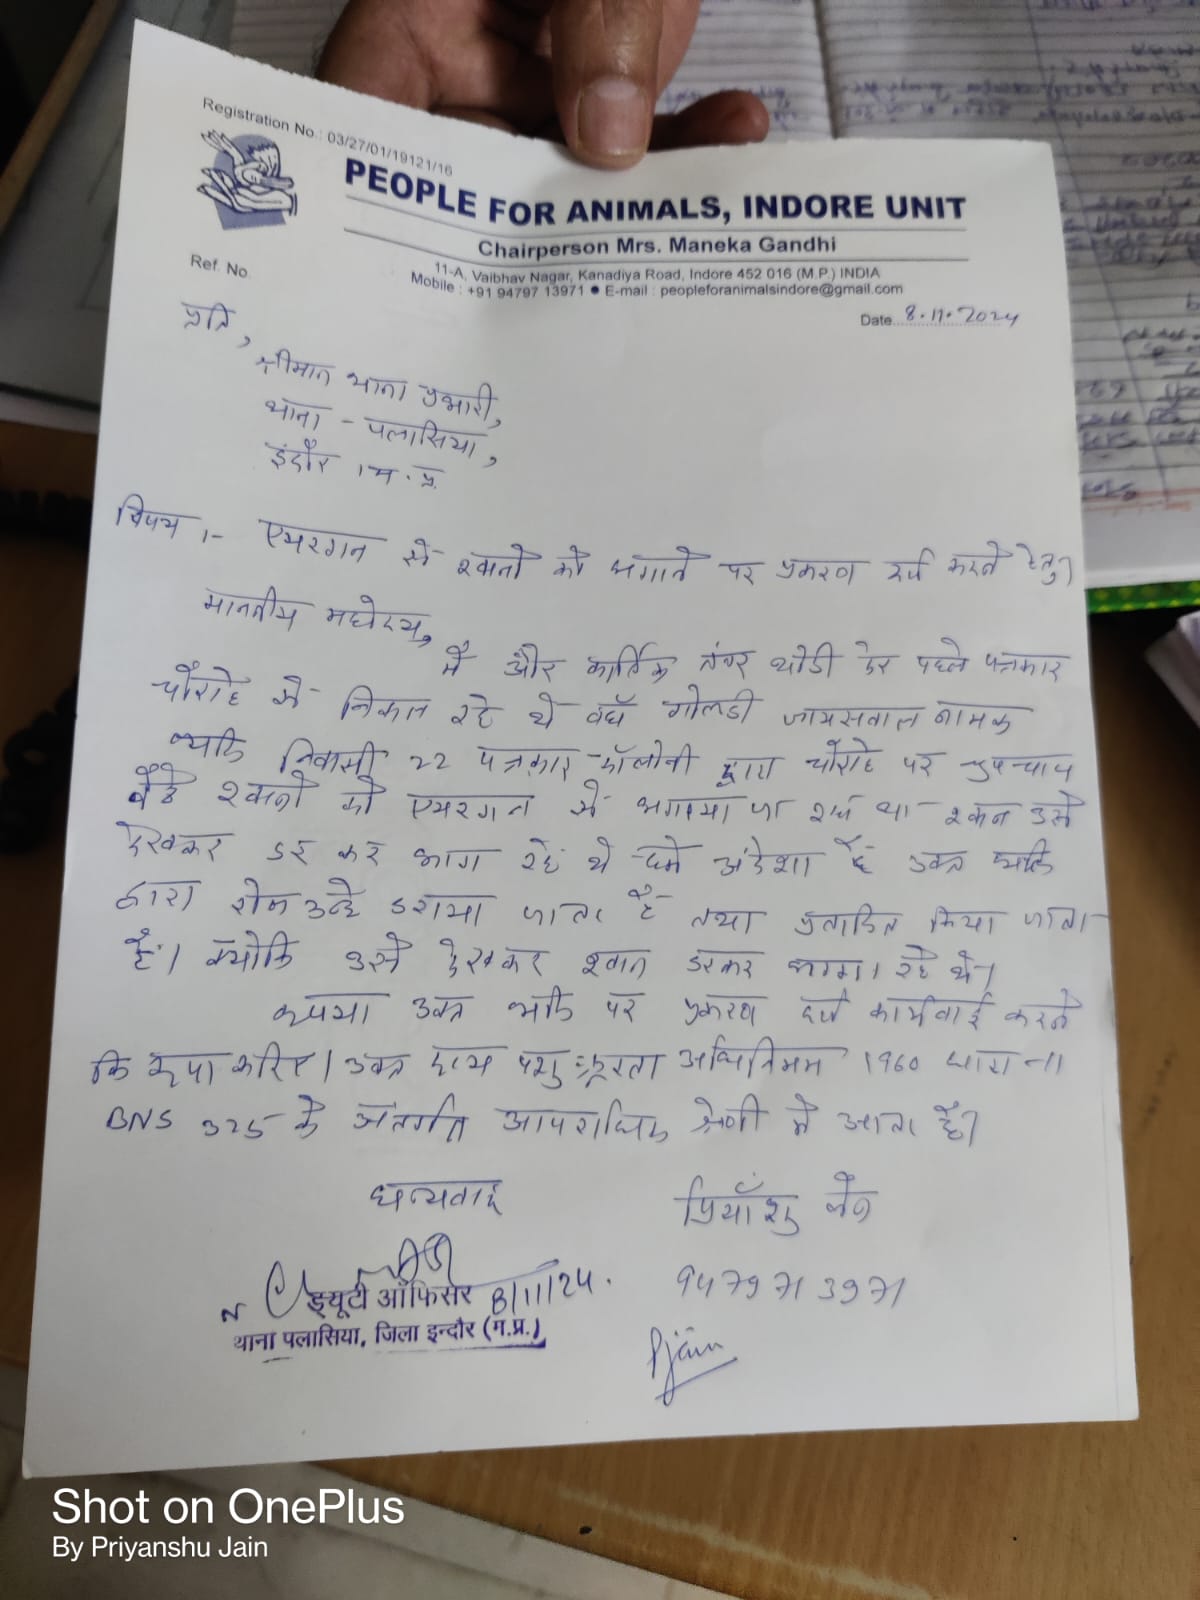 Registration No.: 03/27/01/19121/16
PEOPLE FOR ANIMALS, INDORE UNIT
Chairperson Mrs. Maneka Gandhi
11-A, Vaibhav Nagar, Kanadiya Road, Indore 452 016 (M.P.) INDIA
Mobile : +91 94797 13971 ● E-mail : peopleforanimalsindore@gmail.com
Ref. No.
Date 8.11.2024
प्रति,
श्रीमान थाना प्रभारी,
थाना - पलासिया,
इंदौर म.प्र.
विषय :- एयरगन से श्वानो को भगाने पर प्रकरण दर्ज करने हेतु।
माननीय महोदय,
मैं और कार्तिक तंवर थोडी देर पहले पत्रकार
चौराहे से निकल रहे थे वहाँ गोलडी जायसवाल नामक
व्यक्ति निवासी 22 पत्रकार कॉलोनी द्वारा चौराहे पर चुपचाप
बैठे श्वानो को एयरगन से भगाया जा रहा था श्वान उसे
देखकर डर कर भाग रहे थे हमे अंदेशा है उक्त व्यक्ति
द्वारा रोज उन्हे डराया जाता है तथा प्रताडित किया जाता
है। क्योकि उसे देखकर श्वान डरकर भाग रहे थे।
कृपया उक्त व्यक्ति पर प्रकरण दर्ज कार्यवाई करने
कि कृपा करिए। उक्त कृत्य पशु क्रूरता अधिनियम 1960 धारा 11
BNS 325 के अंतर्गत आपराधिक श्रेणी मे आता है।
धन्यवाद
प्रियाँशु जैन
9479713971
Pjain
8/11/24.
ड्यूटी ऑफिसर
थाना पलासिया, जिला इन्दौर (म.प्र.)
Shot on OnePlus
By Priyanshu Jain